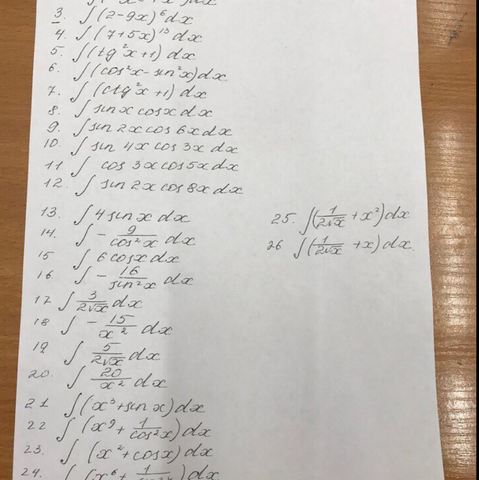 3. ∫(2-9x)⁶dx
4. ∫(7+5x)¹³dx
5. ∫(tg²x+1)dx
6. ∫(cos²x-sin²x)dx
7. ∫(ctg²x+1)dx
8. ∫sinx cosx dx
9. ∫sin 2x cos 6x dx
10. ∫sin 4x cos 3x dx
11 ∫ cos 3x cos 5x dx
12. ∫ sin 2x cos 8x dx
13. ∫4 sin x dx
14. ∫ - 9/cos²x dx
15 ∫ 6 cosx dx
16 ∫ - 16/sin²x dx
17 ∫ 3/2√x dx
18 ∫ - 15/x² dx
19 ∫ 5/2√x dx
20. ∫ 20/x² dx
21 ∫(x³+sin x)dx
22 ∫(x⁹+ 1/cos²x)dx
23. ∫ (x⁴+cosx)dx
24. ∫ (x⁶+ 1/)dx
25. ∫(1/2√x + x²)dx
26 ∫(1/2√x +x)dx.